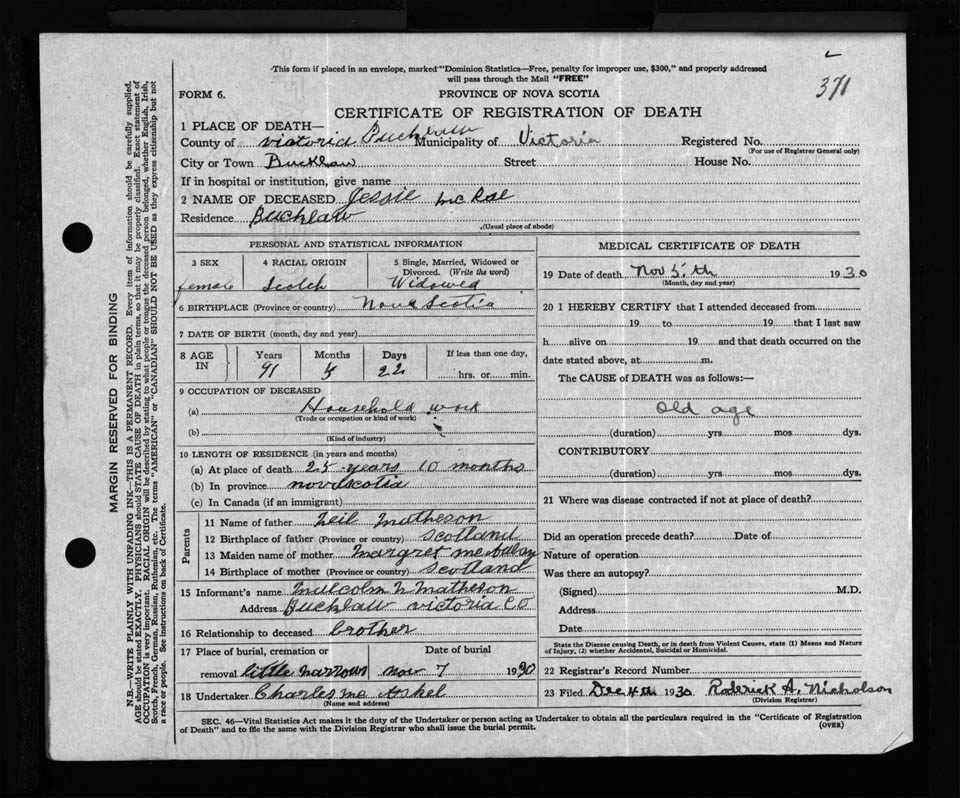 371
This form if placed in an envelope, marked "Dominion Statistics—Free, penalty for improper use, $300," and properly addressed
will pass through the Mail "FREE"
FORM 6.
PROVINCE OF NOVA SCOTIA
CERTIFICATE OF REGISTRATION OF DEATH
1 PLACE OF DEATH—
County of victoria Bucklaw Municipality of Victoria Registered No.
(For use of Registrar General only)
City or Town Bucklaw Street House No.
If in hospital or institution, give name
2 NAME OF DECEASED Jessie Mc Rae
Residence Bucklaw
(Usual place of abode)
PERSONAL AND STATISTICAL INFORMATION
3 SEX 4 RACIAL ORIGIN 5 Single, Married, Widowed or
Divorced. (Write the word)
female Scotch Widowed
6 BIRTHPLACE (Province or country) Nova Scotia
7 DATE OF BIRTH (month, day and year)
8 AGE IN Years Months Days If less than one day,
91 22 hrs. or min.
9 OCCUPATION OF DECEASED
(a) Household work
(Trade or occupation or kind of work)
(b)
(Kind of industry)
10 LENGTH OF RESIDENCE (in years and months)
(a) At place of death 25 years 10 months
(b) In province novascotia
(c) In Canada (if an immigrant)
Parents
11 Name of father Neil Matheson
12 Birthplace of father (Province or country) Scotland
13 Maiden name of mother Margret
14 Birthplace of mother (Province or country) Scotland
15 Informant's name Malcolm N Matheson
Address Bucklaw victoria Co
16 Relationship to deceased brother
17 Place of burial, cremation or Date of burial
removal little narrows nov 7 1930
18 Undertaker Charles Mc Askel
(Name and address)
MEDICAL CERTIFICATE OF DEATH
19 Date of death Nov 5th 1930
(Month, day and year)
20 I HEREBY CERTIFY that I attended deceased from
19 to 19 that I last saw
h alive on 19 and that death occurred on the
date stated above, at m.
The CAUSE of DEATH was as follows:—
Old age
(duration) yrs mos dys.
CONTRIBUTORY
(duration) yrs mos dys.
21 Where was disease contracted if not at place of death?
Did an operation precede death? Date of
Nature of operation
Was there an autopsy?
(Signed) M.D.
Address
Date
State the Disease causing Death, or in death from Violent Causes, state (1) Means and Nature
of Injury, (2) whether Accidental, Suicidal or Homicidal.
22 Registrar's Record Number
23 Filed Dec 4th 1930 Roderick A. Nicholson
(Division Registrar)
SEC. 46—Vital Statistics Act makes it the duty of the Undertaker or person acting as Undertaker to obtain all the particulars required in the "Certificate of Registration
of Death" and to file the same with the Division Registrar who shall issue the burial permit.
(OVER)
MARGIN RESERVED FOR BINDING
N.B.—WRITE PLAINLY WITH UNFADING INK—THIS IS A PERMANENT RECORD. Every item of information should be carefully supplied.
AGE should be stated EXACTLY. PHYSICIANS should STATE CAUSE OF DEATH in plain terms, so that it may be properly classified. Exact statement of
OCCUPATION is very important. RACIAL ORIGIN will be described by stating to what people or tongue the deceased person belonged, whether English, Irish,
Scotch, French, German, Russian, Ruthenian, etc. The terms "AMERICAN" or "CANADIAN" SHOULD NOT BE USED as they express citizenship but not
a race or people. See instructions on back of Certificate.